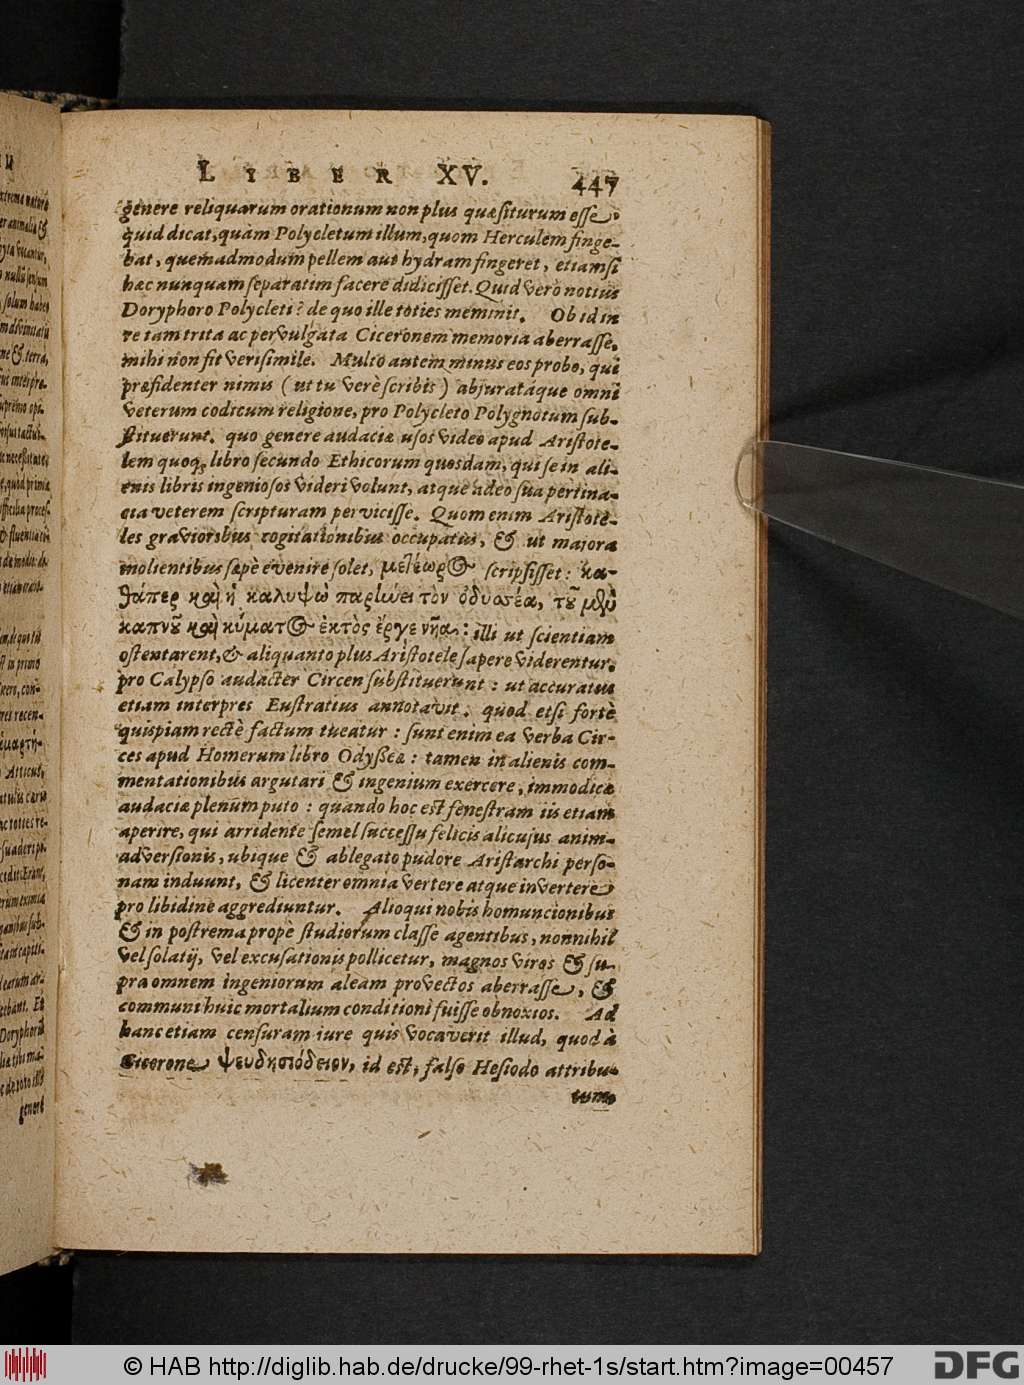 LIBER XV. 447
genere reliquarum orationum non plus quæsiturum esse
quid dicat, quàm Polycletum illum, quom Herculem finge-
bat, quemadmodum pellem aut hydram fingeret, etiamsi
hæc nunquam separatim facere didicisset. Quid verò notius
Doryphoro Polycleti? de quo ille toties meminit. Ob id in
re iam trita ac pervulgata Ciceronem memoria aberrasse,
mihi non fit verisimile. Multo autem minus eos probo, qui
præfidenter nimis (ut tu verè scribis) abjuratáque omni
veterum codicum religione, pro Polycleto Polygnotum sub-
stituerunt. quo genere audaciæ usos video apud Aristote-
lem quoq; libro secundo Ethicorum quosdam, qui se in ali-
enis libris ingeniosos videri volunt, atque adeo sua pertina-
cia veterem scripturam pervicisse. Quom enim Aristote-
les gravioribus cogitationibus occupatus, & ut majora
molientibus sæpè evenire solet, μετέωρος scripsisset: κα-
θάπερ καὶ ἡ καλυψὼ παρῄνει τὸν ὀδυσσέα, τοῦ μὲν
καπνοῦ καὶ κύματος ἐκτὸς ἔργε νῆα: illi ut scientiam
ostentarent, & aliquanto plus Aristotele sapere viderentur,
pro Calypso audacter Circen substituerunt: ut accuratus
etiam interpres Eustratius annotavit. quod etsi fortè
quispiam rectè factum tueatur: sunt enim ea verba Cir-
ces apud Homerum libro Odysseæ: tamen in alienis com-
mentationibus argutari & ingenium exercere, immodicæ
audaciæ plenum puto: quando hoc est fenestram iis etiam
aperire, qui arridente semel successu felicis alicujus anim-
adversionis, ubique & ablegato pudore Aristarchi perso-
nam induunt, & licenter omnia vertere atque invertere
pro libidine aggrediuntur. Alioqui nobis homuncionibus
& in postrema prope studiorum classe agentibus, nonnihil
vel solatij, vel excusationis pollicetur, magnos viros & su-
pra omnem ingeniorum aleam provectos aberrasse, &
communi huic mortalium conditioni fuisse obnoxios. Ad
hanc etiam censuram iure quis vocaverit illud, quod à
Cicerone ψευδησιόδειον, id est, falso Hesiodo attribu-
tum,
© HAB http://diglib.hab.de/drucke/99-rhet-1s/start.htm?image=00457 DFG